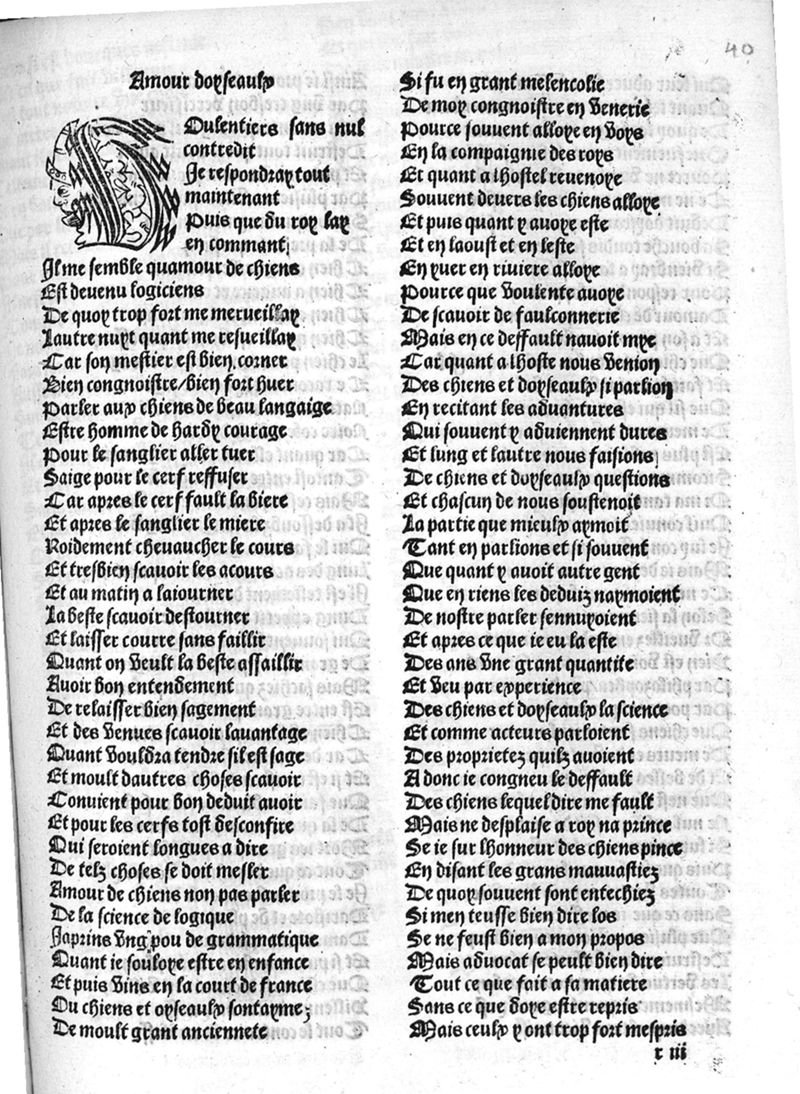 40
Amour doyseaulx
Voulentiers sans nul
contredit
Je respondray tout
maintenant
Puis que du roy lay
en commant
Il me semble quamour de chiens
Est devenu logiciens
De quoy trop fort me merveillay
Lautre nuyt quant me resveillay
Car son mestier est bien corner
Bien congnoistre/bien fort huer
Parler aux chiens de beau langaige
Estre homme de hardy courage
Pour le sanglier aller tuer
Saige pour le cerf reffuser
Car apres le cerf fault la biere
Et apres le sanglier le miere
Roidement chevaucher le cours
Et tresbien scavoir les acours
Et au matin a laiourner
La beste scavoir destourner
Et laisser courre sans faillir
Quant on veult la beste assaillir
Avoir bon entendement
De relaisser bien sagement
Et des venues scavoir lavantage
Quant vouldra tendre sil est sage
Et moult dautres choses scavoir
Convient pour bon deduit avoir
Et pour les cerfs tost desconfire
Qui seroient longues a dire
De telz choses se doit mesler
Amour de chiens non pas parler
De la science de logique
Japrins ung pou de grammatique
Quant ie souloye estre en enfance
Et puis vins en la court de france
Ou chiens et oyseaulx sont ayme;
De moult grant anciennete
Si fu en grant melencolie
De moy congnoistre en venerie
Pource souvent alloye en voys
En la compaignie des roys
Et quant a lhostel revenoye
Souvent devers les chiens alloye
Et puis quant y avoye este
Et en laoust et en leste
En yver en riviere alloye
Pource que voulente avoye
De scavoir de faulconnerie
Mais en ce deffault navoit mye
Car quant a lhoste nous venion
Des chiens et doyseaulx si parlion
En recitant les advantures
Qui souvent y adviennent dures
Et lung et lautre nous faisions
De chiens et doyseaulx questions
Et chascun de nous soustenoit
La partie que mieulx aymoit
Tant en parlions et si souvent
Que quant y avoit autre gent
Que en riens les deduiz naymoient
De nostre parler sennuyoient
Et apres ce que ie eu la este
Des ans une grant quantite
Et veu par experience
Des chiens et doyseaulx la science
Et comme acteurs parloient
Des proprietez quilz avoient
Adonc ie congneu le deffault
Des chiens lequel dire me fault
Mais ne desplaise a roy na prince
Se ie sur lhonneur des chiens pince
En disant les grans mauvastiez
De quoy souvent sont entechiez
Si men teusse bien dire los
Se ne feust bien a mon propos
Mais advocat se peult bien dire
Tout ce que fait a sa matiere
Sans ce que doye estre repris
Mais ceulx y ont trop fort mespris
r iii